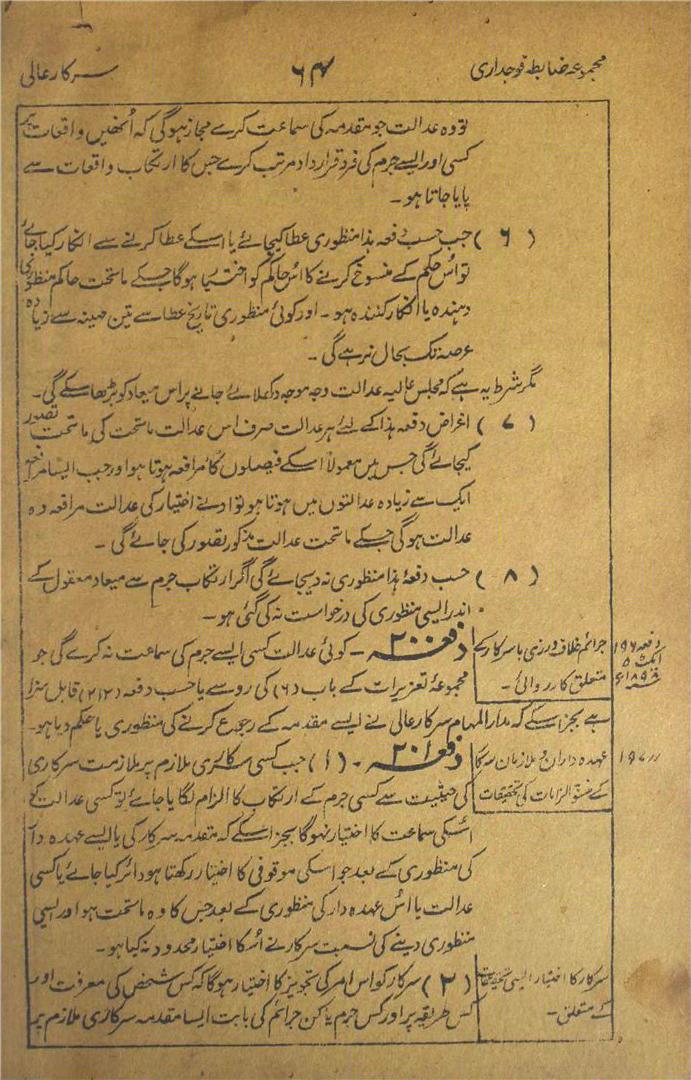 مجموعہ ضابطہ فوجداری
۶۴
سرکار عالی
تو وہ عدالت جو مقدمہ کی سماعت کرے مجاز ہوگی کہ اُنھیں واقعات پر
کسی اور ایسے جرم کی فرد قرار داد مرتب کرے جس کا ارتکاب واقعات سے
پایا جاتا ہو ۔
( ۶ ) جب حسب دفعہ ہذا منظوری عطا کیجائے یا اسکے عطا کرنے سے انکار کیا جائے
تو اُس حکم کے منسوخ کرنے کا اُس حاکم کو اختیار ہوگا جسکے ماتحت حاکم منظوری
دہندہ یا انکار کنندہ ہو ۔ اور کوئی منظوری تاریخ عطا سے تین مہینہ سے زیادہ
عرصہ تک بحال نہ رہے گی ۔
مگر شرط یہ ہے کہ مجلس عالیہ عدالت وجہ موجہ دکھلائے جانے پر اس میعاد کو بڑھا سکے گی ۔
( ۷ ) اغراض دفعہ ہذا کے لئے ہر عدالت صرف اس عدالت ماتحت کی ماتحت تصور
کیجائے گی جس میں معمولاً اسکے فیصلوں کا مرافعہ ہوتا ہو اور جب ایسا مرافعہ
ایک سے زیادہ عدالتوں میں ہوتا ہو تو ادنے اختیار کی عدالت مرافعہ وہ
عدالت ہوگی جسکے ماتحت عدالت مذکور تصور کی جائے گی ۔
( ۸ ) حسب دفعۂ ہذا منظوری نہ دیجائے گی اگر ارتکاب جرم سے میعاد معقول کے
اندر ایسی منظوری کی درخواست نہ کی گئی ہو ۔
دفعہ ۱۹۶
ایکٹ ۵
۱۸۹۸ء
جرائم خلاف ورزی با سرکار کے
متعلق کارروائی ۔
دفعہ ۲۰۰ ۔ کوئی عدالت کسی ایسے جرم کی سماعت نہ کرے گی جو
مجموعۂ تعزیرات کے باب (۶) کی رو سے یا حسب دفعہ (۲۱۲) قابل سزا
ہے بجز اسکے کہ مدار المہام سرکار عالی نے ایسے مقدمہ کے رجوع کرنے کی منظوری یا حکم دیا ہو ۔
〃 ۱۹۷
عہدہ داران و ملازمان سرکار
کے الزامات کی تحقیقات
دفعہ ۲۰۱ ۔ (۱) جب کسی سرکاری ملازم پر بلازمت سرکاری
کی حیثیت سے کسی جرم کے ارتکاب کا الزام لگایا جائے تو کسی عدالت کو
اُسکی سماعت کا اختیار نہوگا بجز اسکے کہ مقدمہ سرکار کی یا ایسے عہدہ دار
کی منظوری کے بعد جو اسکی موقوفی کا اختیار رکھتا ہو دائر کیا جائے یا کسی
عدالت یا اُس عہدہ دار کی منظوری کے بعد جس کا وہ ماتحت ہو اور ایسی
منظوری دینے کی نسبت سرکار نے اُسکا اختیار محدود نہ کیا ہو ۔
سرکار کا اختیار ایسی تحقیقات
کے متعلق ۔
(۲) سرکار کو اس امر کی تجویز کا اختیار ہوگا کہ کس شخص کی معرفت اور
کس طریقہ پر اور کس جرم یا کن جرائم کی بابت ایسا مقدمہ سرکاری ملازم پر